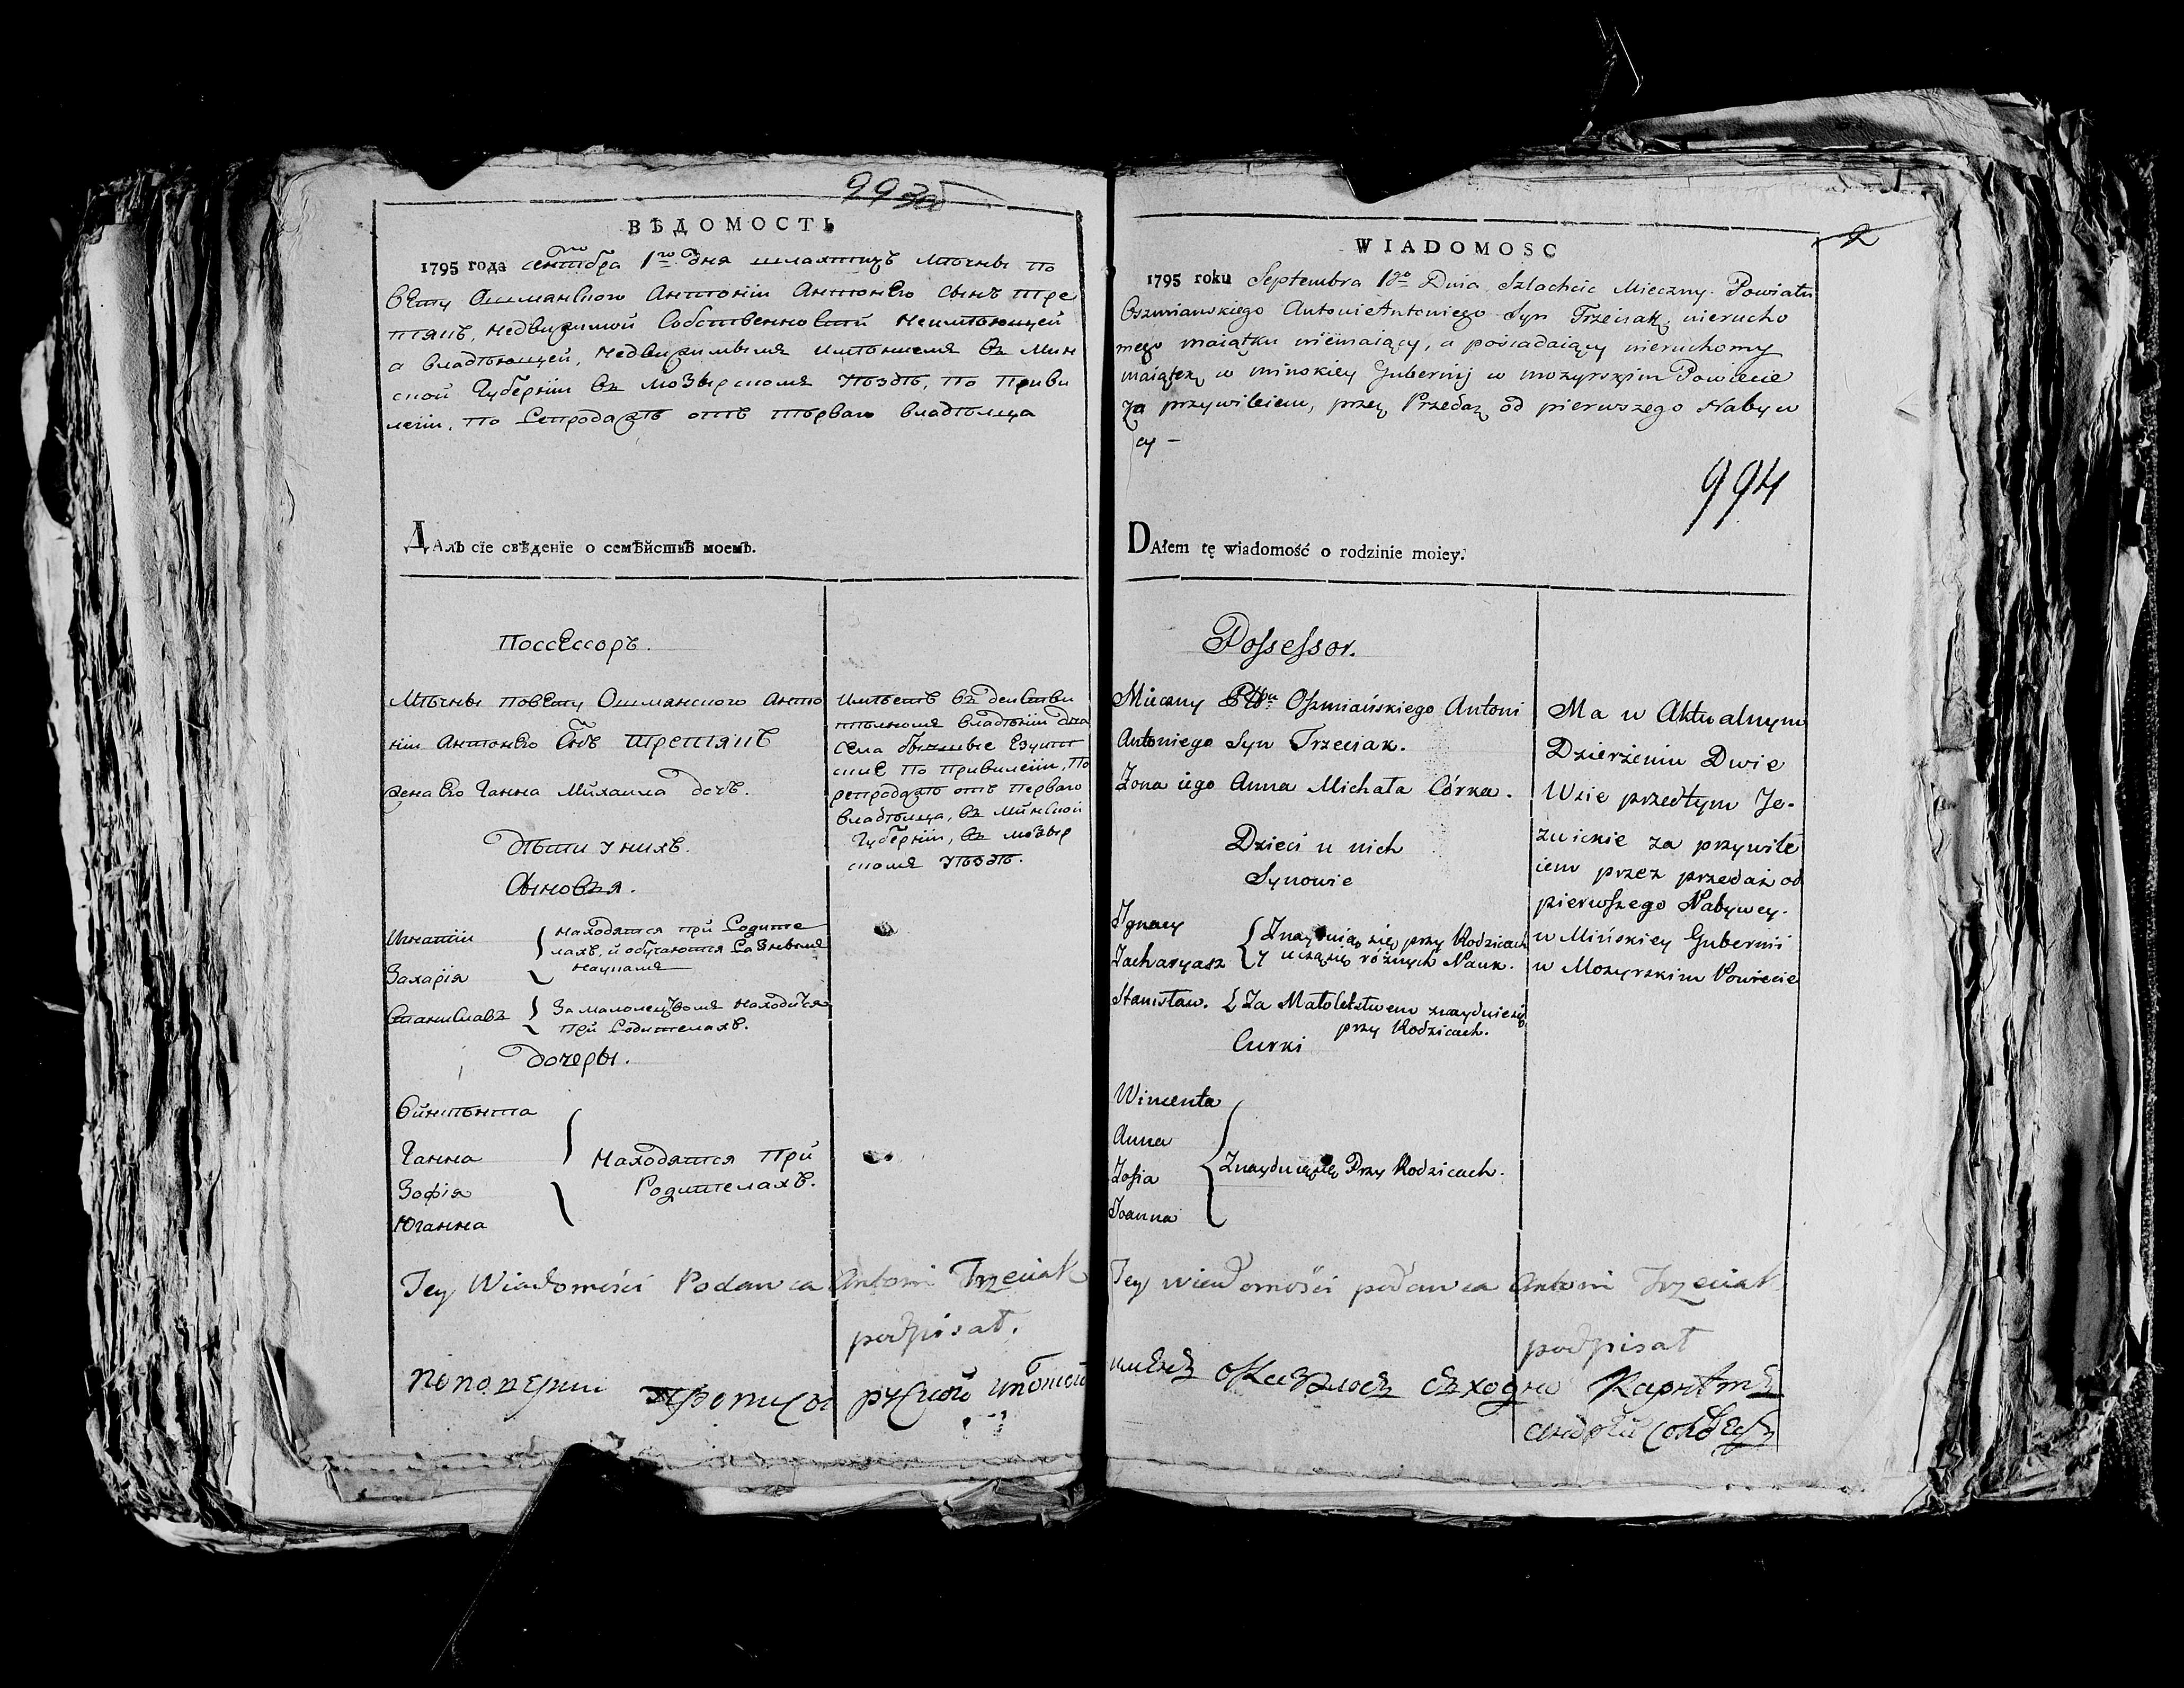 993
ВѢДОМОСТЬ
1795 года сентября 1го дня шляхтицъ Мѣчны по
вету Ошманского Антоній Антонего сынъ Тре
тякъ, недвижимой собственности неимѣющей
а владѣющей, недвижимымъ имѣниемъ въ Мин
ской Губерніи въ Мозырскомъ уѣздѣ, по приви
легіи, по репродажѣ отъ первого владѣльца
Далъ сїе свѣденїе о семѣйствѣ моемъ.
Поссессоръ.
Мѣчны повету Ошманского Анто
ній Антонего сынъ Третякъ
жена его Ганна Михаила дочь.
Дѣти у нихъ.
Сыновья.
Игнатій
Захарія
находятся при родите
лахъ, и обучаются разнымъ
наукамъ
Станиславъ
За малолецтвомъ находится
при родителахъ.
Дочеры.
Винцѣнта
Ганна
Зофія
Юганна
Находятся при
Родителахъ.
Имѣетъ въ действи
тѣльномъ владѣніи два
села бывшые Езуит
ские по привилегіи, по
репродажѣ отъ первого
владѣльца, въ Минской
Губерніи, въ Мозыр
скомъ уѣздѣ.
Tey Wiadomości Podawca Antoni Trzeciak
podpisał.
2
WIADOMOSC
1795 roku Septembra 1go Dnia Szlachcic Mieczny Powiatu
Oszmianskiego Antoni Antoniego Syn Trzeciak, nierucho
mego maiątku niemaiący, a posiadaiący nieruchomy
maiątek w minskiey Gubernij w mozyrskim Powiecie
za przywileiem, przez Przedaż od pierwszego Nabyw
cy –
994
DAłem tę wiadomość o rodzinie moiey.
Possessor.
Mieczny Pttu Oszmiańskiego Antoni
Antoniego Syn Trzeciak.
Żona iego Anna Michała Córka.
Dzieci u nich
Synowie
Ignacy
Zacharyasz
Znayduią się przy Rodzicach
y uczą się różnych Nauk.
Stanisław.
Za Małoletstwem znayduie się
przy Rodzicach.
Curki
Wincenta
Anna
Zofia
Joanna
Znayduią się Przy Rodzicach.
Ma w Aktualnym
Dzierżeniu Dwie
Wsie przedtym Je-
zuickie za przywile
iem przez przedaż od
pierwszego Nabywcy.
w Mińskiey Gubernii
w Mozyrskim Powiecie
Tey wiadomości podawca Antoni Trzeciak
podpisał